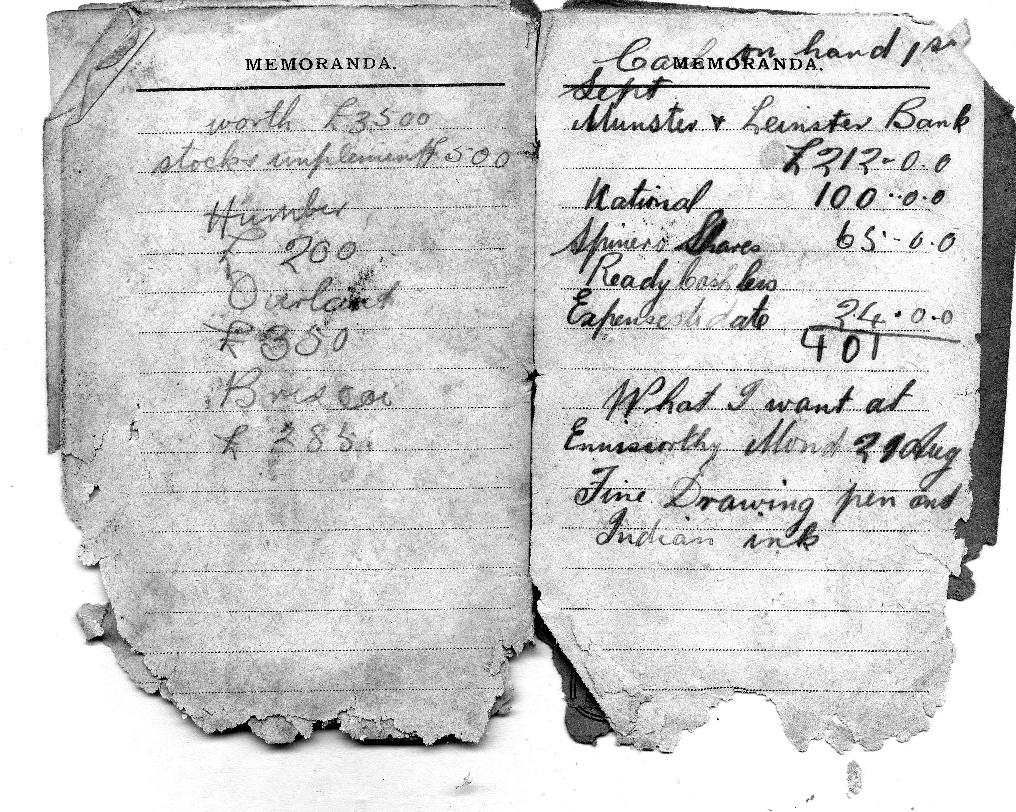 MEMORANDA.
worth £3500
stock & implements £500
Humber
£ 200
Overland
£350
Briscoe
£ 285
MEMORANDA.
Cash on hand 1st
Sept
Munster & Leinster Bank
£212-0.0
National 100-0.0
Spinero Shares 65-0.0
Ready Cash less
Expenses to date 24.0.0
401
What I want at
Enniscorthy Mond 29 Aug
Fine Drawing pen and
Indian ink